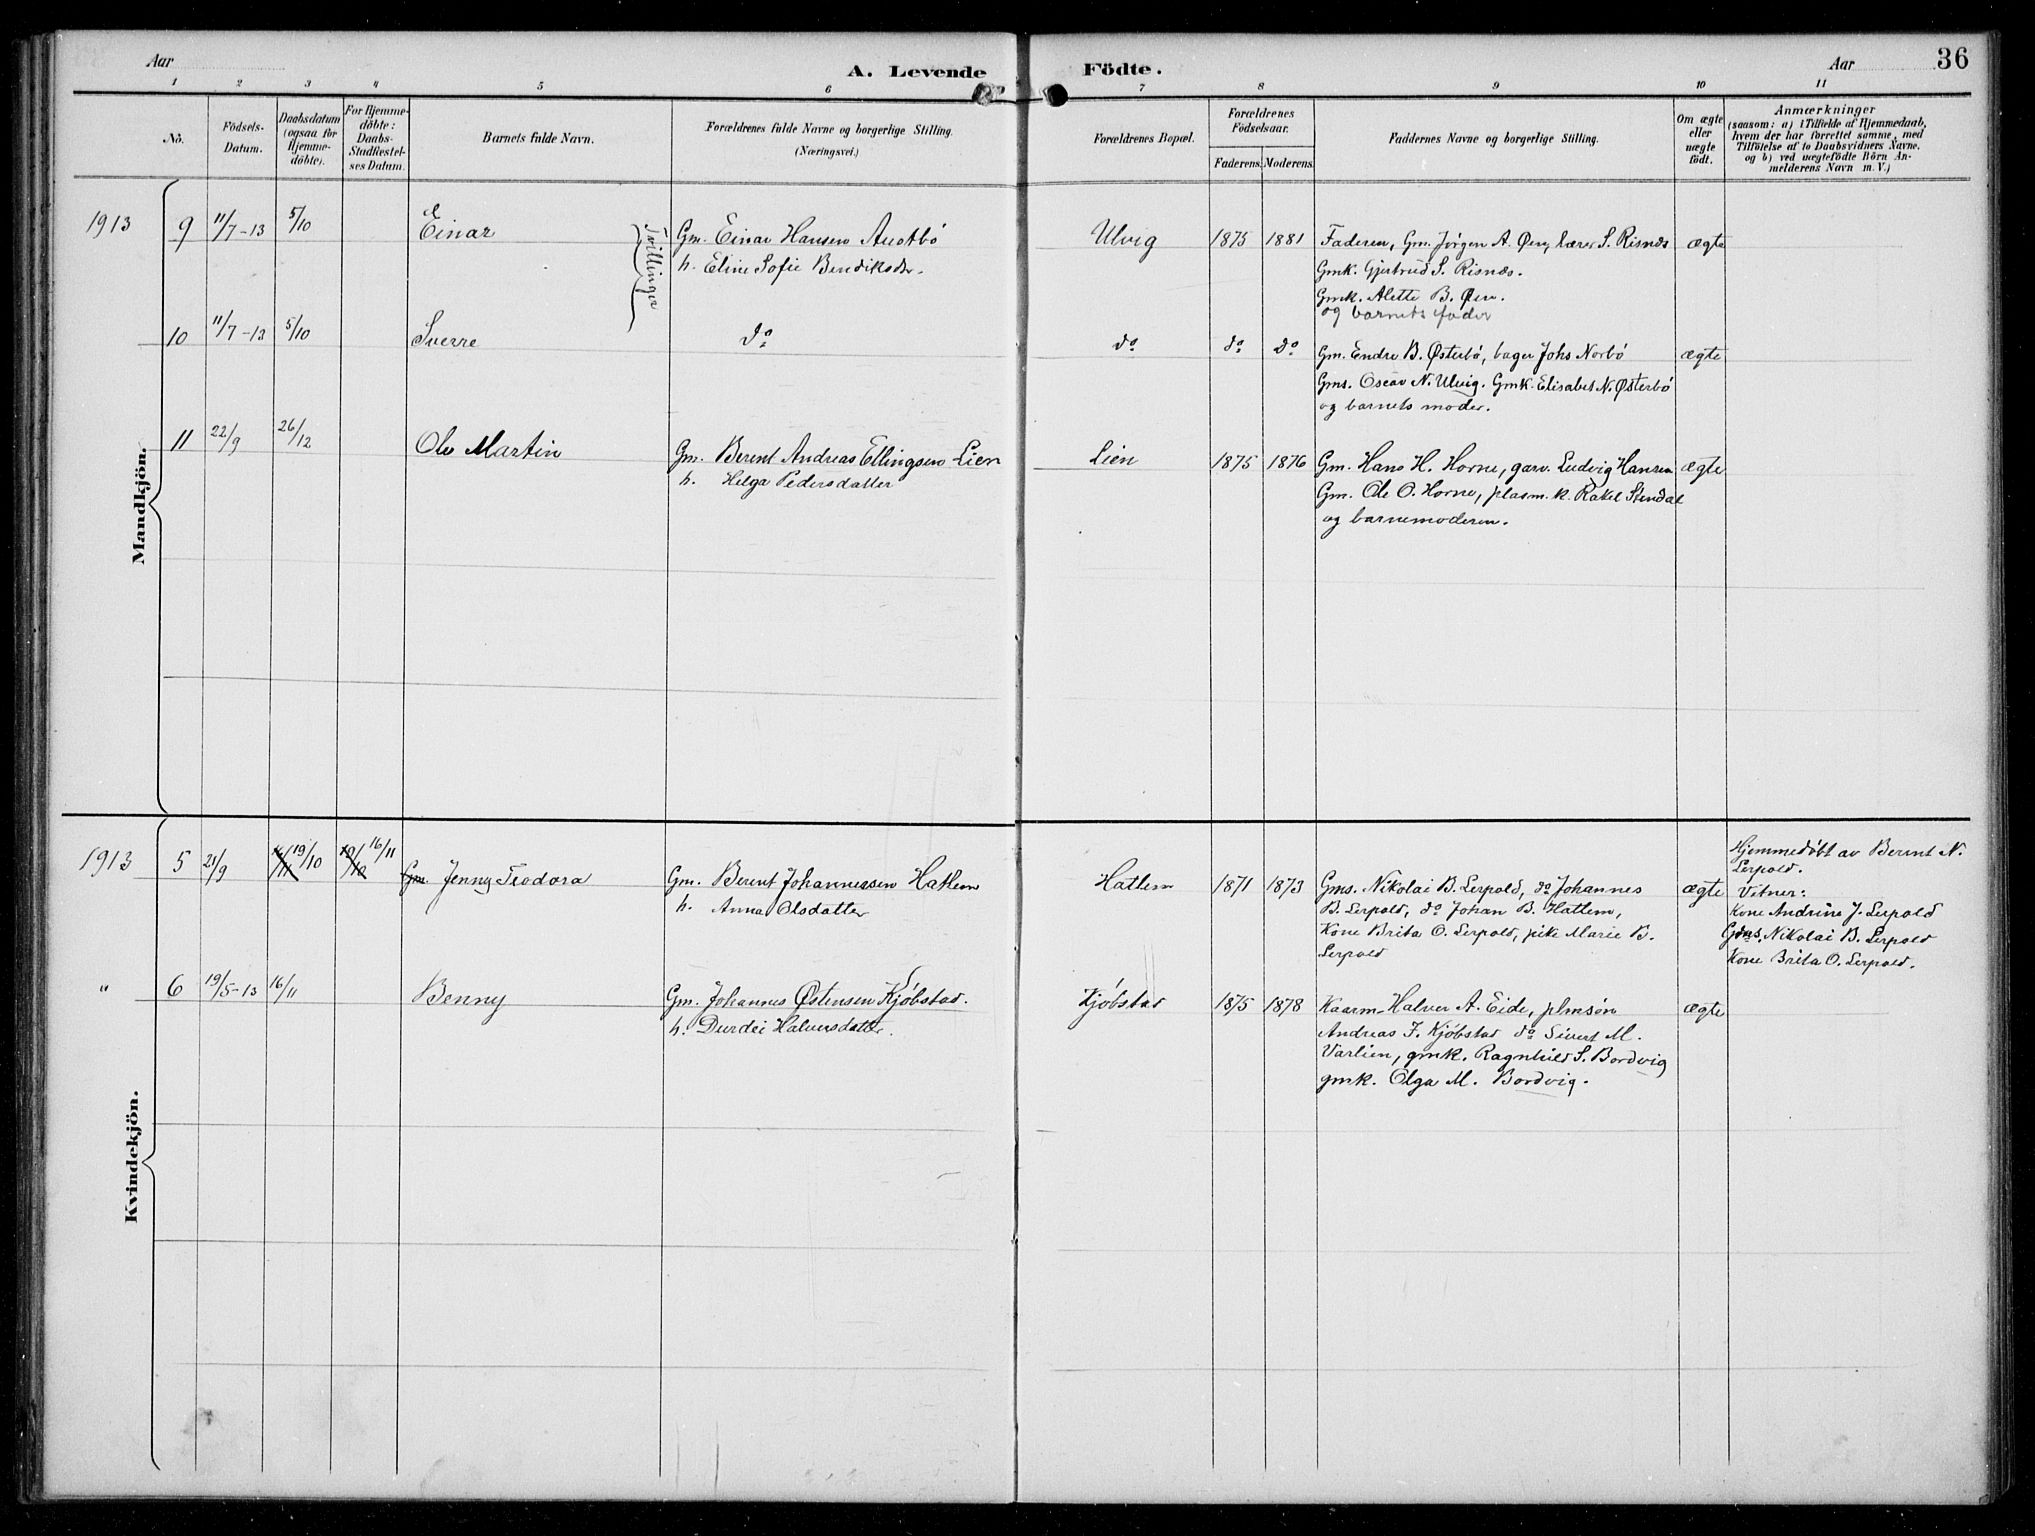 Aar
A. Levende
Födte.
Aar
36
1 2 3 4 5 6 7 8 9 10 11
No.
Födsels-
Datum.
Daabsdatum
(ogsaa for
Hjemme-
döbte).
For Hjemme-
döbte:
Daabs-
Stadfæstel-
ses Datum.
Barnets fulde Navn.
Forældrenes fulde Navne og borgerlige Stilling.
(Næringsvei.)
Forældrenes Bopæl.
Forældrenes
Födselsaar.
Faderens. Moderens.
Faddernes Navne og borgerlige Stilling.
Om ægte
eller
uægte
født.
Anmærkninger
(saasom: a) i Tilfælde af Hjemmedaab,
hvem der har forrettet samme, med
Tilföielse af to Daabsvidners Navne,
og b) ved uægtefödte Börn An-
melderens Navn m. V.)
Mandkjön.
1913 9 11/7-13 5/10 Einar
Tvillinger
Gm. Einar Hansen Austbö
h. Eline Sofie Bendiksdr.
Ulvig 1875 1881
Faderen, Gm. Jørgen A. Øen, lærer S. Risnæs
Gmk. Gjertrud S. Risnæs.
Gmk. Alette B. Øen.
og barnets fader
ægte
10 11/7-13 5/10 Sverre do do do do
Gm. Endre B. Østerbö, bager Johs Norbö
Gms. Oscar N. Ulvig. Gmk. Elisabet N. Østerbö
og barnets moder.
ægte
11 22/9 26/12 Ole Martin
Gm. Berent Andreas Ellingsen Lien
h. Helga Pedersdatter
Lien 1875 1876
Gm. Hans H. Horne, garv. Ludvig Hansen
Gm. Ole O. Horne, plasm. k. Rakel Stendal
og barnemoderen.
ægte
Kvindekjön.
1913 5 21/9 16/11 19/10 19/10 16/11 Gm. Jenny Teodora
Gm. Berent Johannessen Hatlem
h. Anna Olsdatter
Hatlem 1871 1873
Gms. Nikolai B. Lerpold, do Johannes
B. Lerpold, do Johan B. Hatlem,
Kone Brita O. Lerpold, pike Marie B.
Lerpold
ægte
Hjemmedöbt av Berent N.
Lerpold.
Vitner:
Kone Andrine J. Lerpold
Gms. Nikolai B. Lerpold
Kone Brita O. Lerpold.
" 6 19/5-13 16/11 Benny
Gm. Johannes Østensen Kjöbstad.
h. Durdei Halversdatter.
Kjöbstad 1875 1878
Kaarm. Halver A. Eide, plmsön
Andreas J. Kjöbstad do Sivert M.
Varlien, gmk. Ragnhild S. Bordvig
gmk. Olga M. Bordvig.
ægte